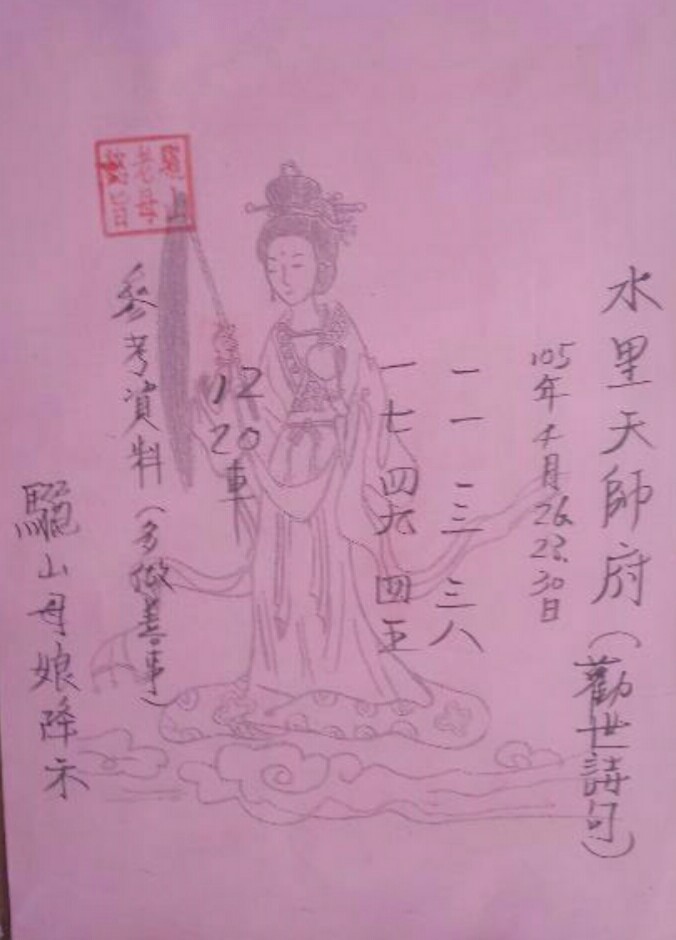 水里天師府(勸世詩句)
105年4月26.28.30日
一一 一三 三八
一七 四九 四五
12 20車
參考資料(多做善事)
驪山母娘降示
驪山
老母
旨